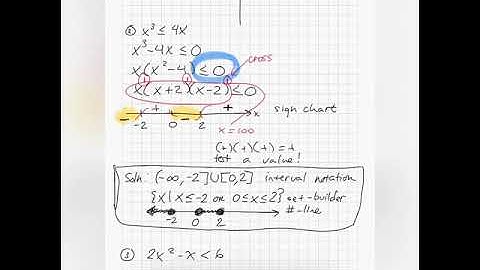 ② x³ ≤ 4x
x³-4x ≤ 0
x(x²-4) ≤ 0
CROSS
1 1 1
x(x+2)(x-2) ≤ 0
- + - + x sign chart
-2 0 2
x=100
(+)(+)(+) = +
test a value!
Soln: (-∞,-2]∪[0,2] interval notation
{x| x≤-2 or 0≤x≤2} set-builder
#-line
-2 0 2
③ 2x²-x<6